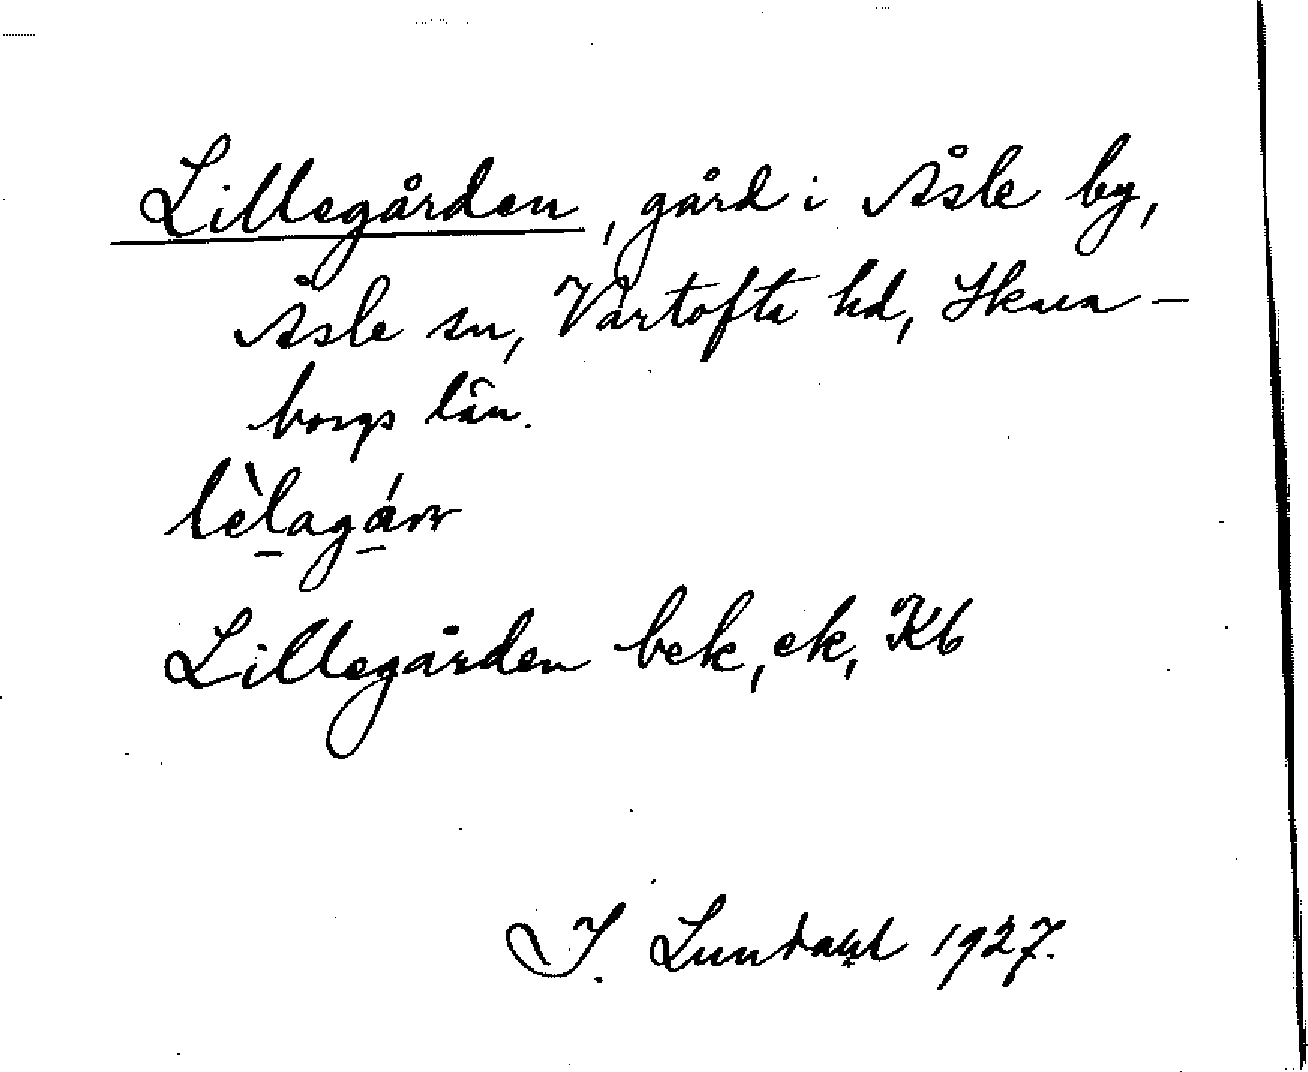 Lillegården, gård i Åsle by,
Åsle sn, Vartofta hd, Skara-
borgs län.
lèlagárr
Lillegården bek, ek, Kb
I. Lundahl 1927.